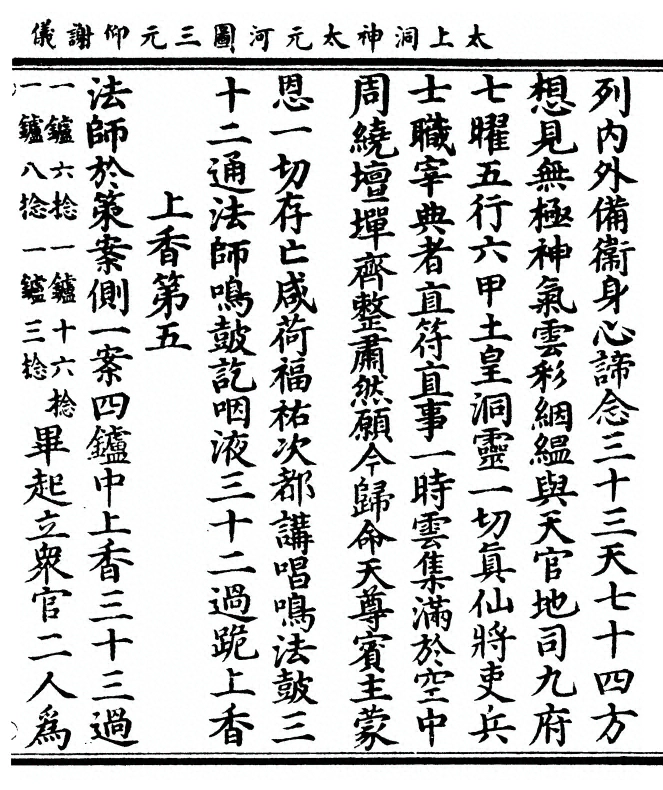 太上洞神太元河圖三元仰謝儀
列內外備衞身心諦念三十三天七十四方
想見無極神氣雲彩絪縕與天官地司九府
七曜五行六甲土皇洞靈一切眞仙將吏兵
士職宰典者直符直事一時雲集滿於空中
周繞壇墠齊整肅然願今歸命天尊賓主蒙
恩一切存亡咸荷福祐次都講唱鳴法鼓三
十二通法師鳴鼓訖咽液三十二過跪上香
上香第五
法師於策案側一案四鑪中上香三十三過
一鑪六捻一鑪十六捻
一鑪八捻一鑪三捻
畢起立衆官二人爲